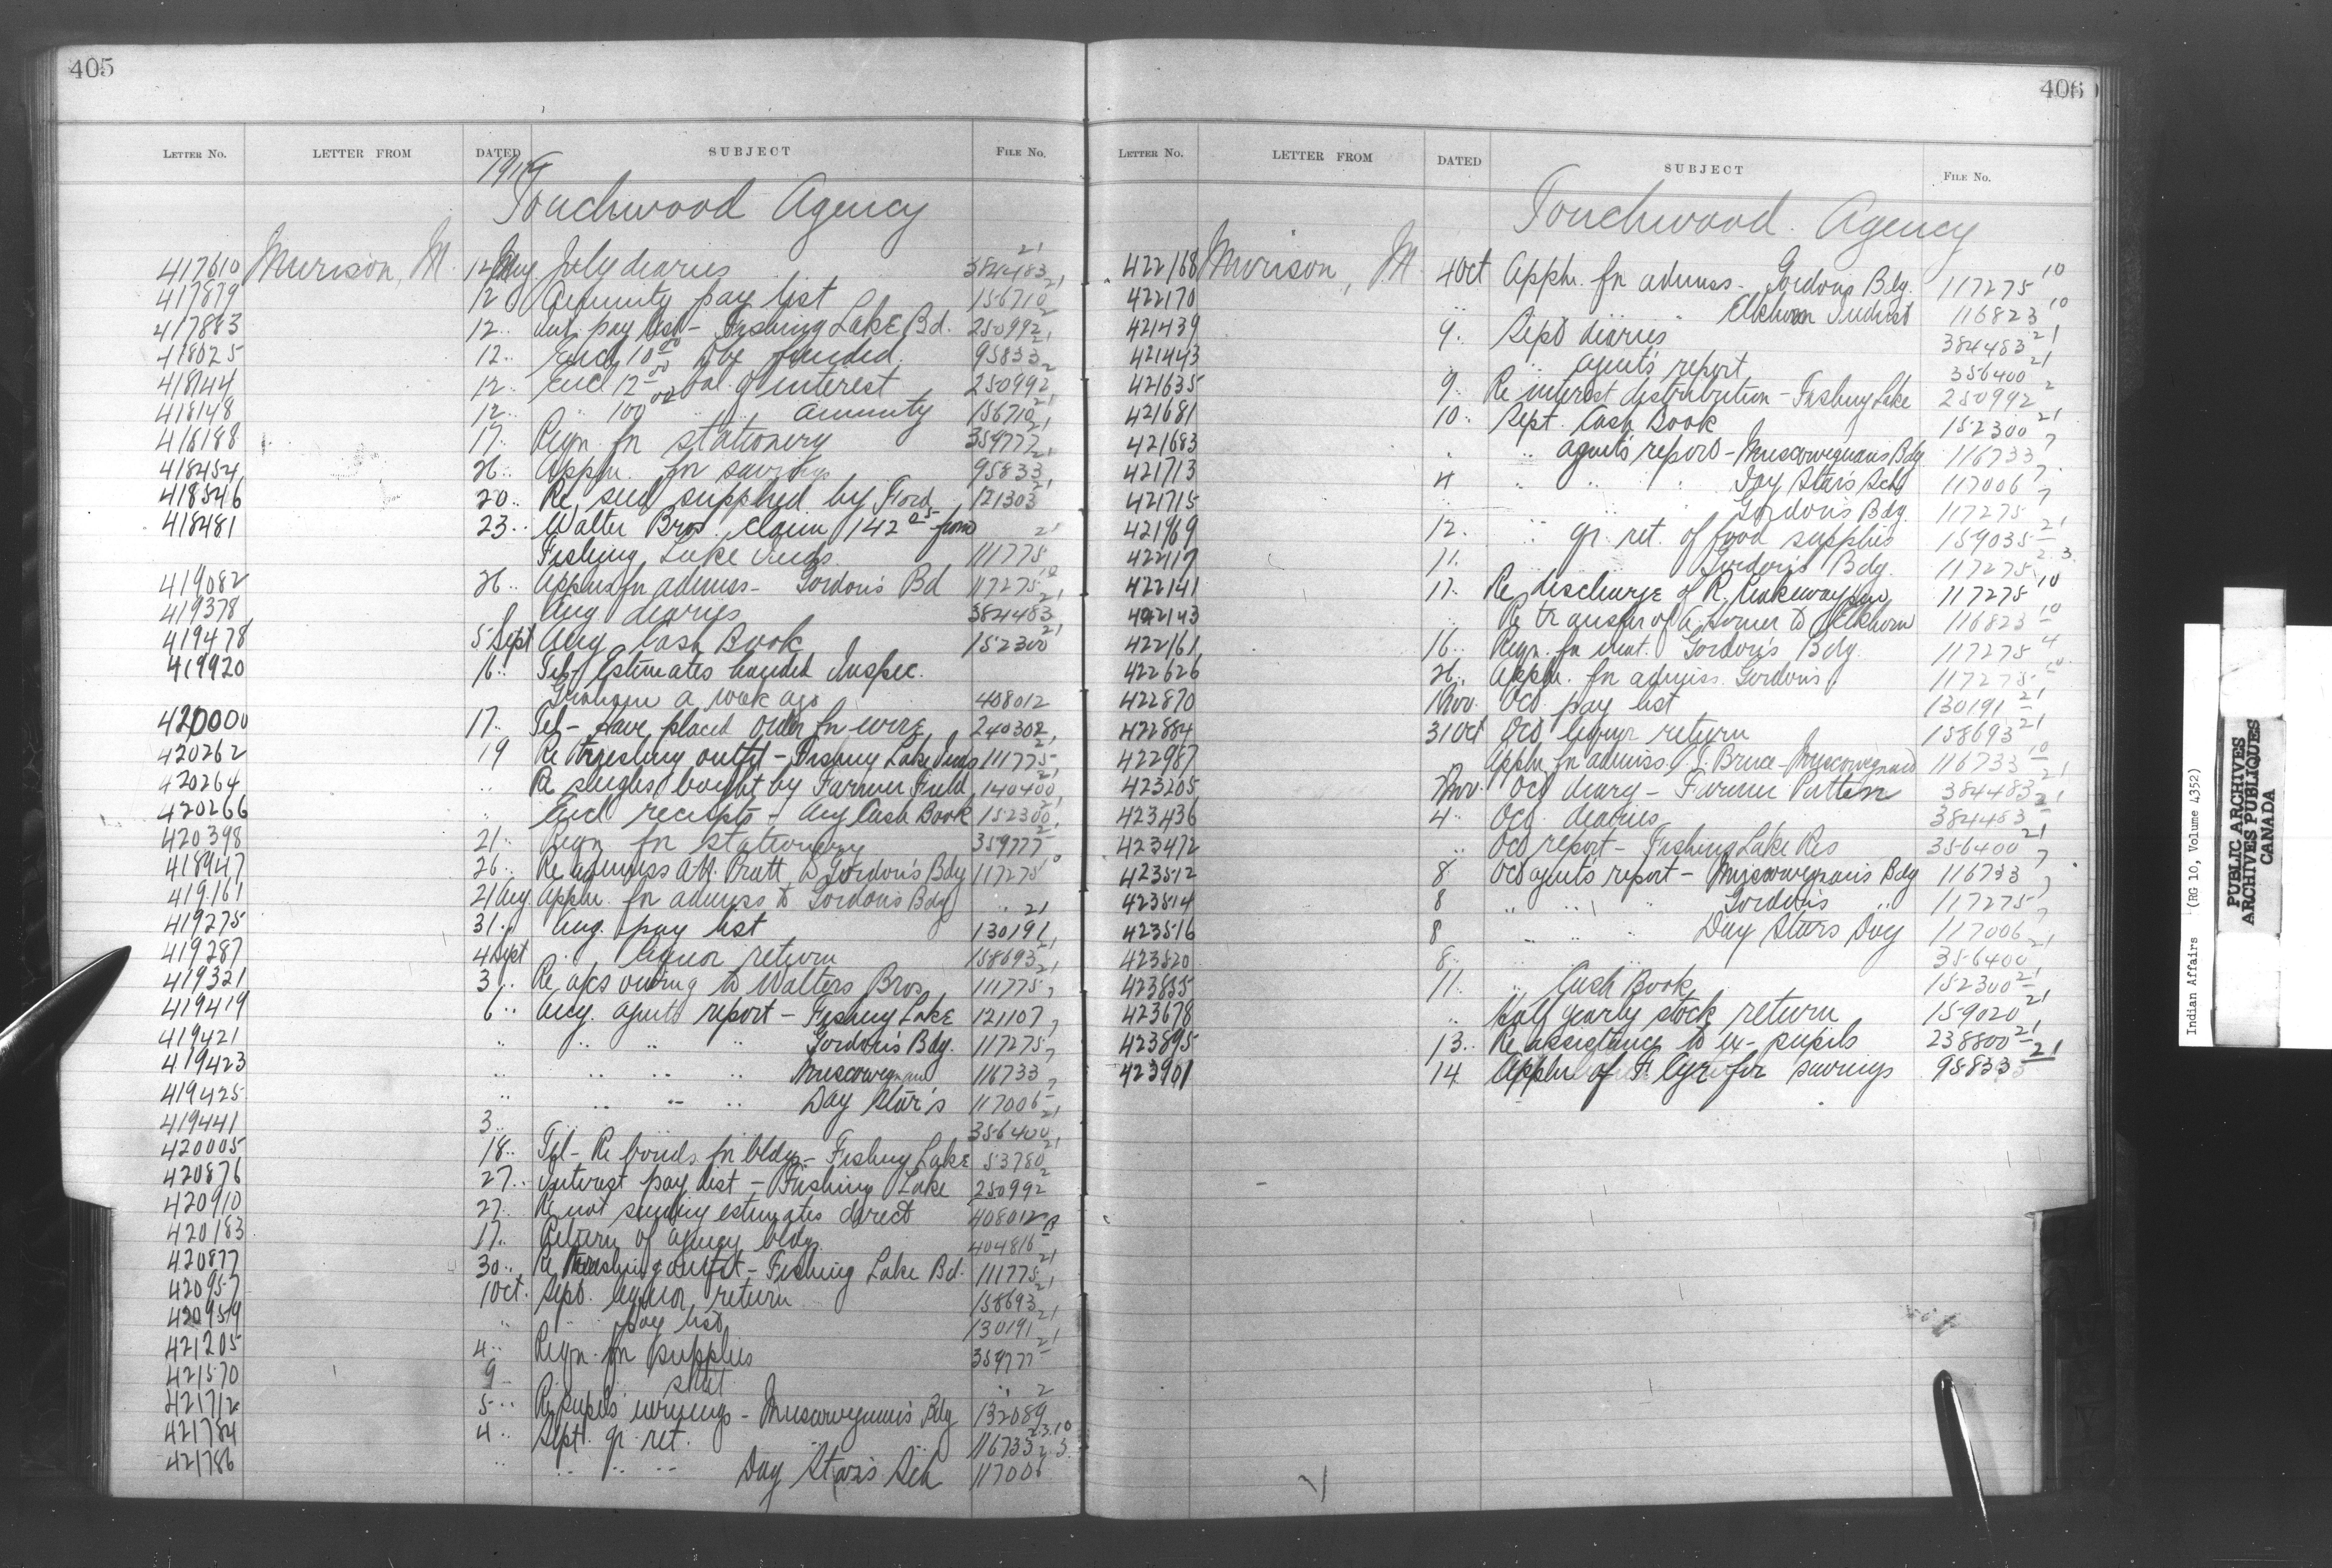 405
LETTER NO. LETTER FROM DATED SUBJECT FILE NO.
Touchwood Agency
417610 Murison, M. 12 Aug July diaries 384483 21
417879 12 Annuity pay list 156710 21
417883 12 .. Int. pay list - Fishing Lake Bd. 250992 2
418025 12 .. Encl. 10 00 to be funded. 95833 21
418144 12 .. Encl 12 00 bal of interest 250992 2
418148 12 .. " 100 00 " " annuity 156710 2
418188 17 .. Reqn. for stationery 359777 21
418454 26 .. Appln. for savings 95833 21
418546 20 .. Re seed supplied by Ford 121303 21
418481 23 .. Walter Bros. claim 142 05 from
Fishing Lake Inds. 111775 21
419082 26 .. Applns for admiss - Gordon's Bd 117275 10
419378 Aug diaries 384483 21
419478 5 Sept Aug Cash Book 152300 21
419920 16 .. Tel - Estimates handed Inspec.
Graham a week ago 408012
420000 17 .. Tel - Have placed order for wire 240302
420262 19 Re threshing outfit - Fishing Lake Inds 111775 21
420264 .. Re sleighs bought by Farmer Field 140400 21
420266 .. Encl receipts - Aug Cash Book 152300 21
420398 21 .. Reqn for stationery 359777 2
418947 26 .. Re admiss A.H. Pratt to Gordon's Bdg 117275 10
419161 21 Aug Appln. for admiss to Gordons Bdg ..
419275 31 .. Aug. pay list 130191 21
419287 4 Sept .. liquor return 158693 21
419321 3 .. Re a/cs owing to Walters Bros 111775 21
419419 6 .. Aug. agents report - Fishing Lake 121107 7
419421 .. .. .. .. Gordon's Bdg. 117275 7
419423 .. .. .. .. Muscowequan 116733 7
419425 .. .. .. .. Day Star's 117006 7
419441 3 .. 356400 21
420005 18 .. Tel - Re bonds for bldg - Fishing Lake 53780 21
420876 27 .. Interest pay list - Fishing Lake 250992 2
420910 27 .. Re not sending estimates direct 408012
420183 17 .. Return of agency bldgs 404816
420877 30 .. Re threshing outfit - Fishing Lake Bd. 111775 21
420957 1 Oct. Sept. liquor return 158693 21
420959 " " pay list 130191 21
421205 4 .. Reqn. for supplies 359777 21
421570 9 .. ..
421712 5 .. Re pupils earnings - Muscowequan's Bdg 132089 2
421784 4 .. Sept. qr. ret. .. .. 116733 2.3.10
421786 .. .. .. .. Day Star's Sch 117006 2 3.
406
LETTER NO. LETTER FROM DATED SUBJECT FILE NO.
Touchwood Agency
422168 Murison, M. 4 Oct Appln. for admiss - Gordons Bdg. 117275 10
422170 .. " Elkhorn Indust 116823 10
421439 9 .. Sept diaries 384483 21
421443 .. .. agent's report 356400 21
421635 9 .. Re interest distribution - Fishing Lake 250992 2
421681 10 .. Sept. Cash Book 152300 21
421683 .. .. agent's report - Muscowequans Bdg 116733 7
421713 4 .. .. .. Day Stars Sch 117006 7
421715 .. .. .. Gordon's Bdg. 117275 7
421969 12. .. qr. ret. of food supplies 159035 21
422117 11. .. .. Gordon's Bdg. 117275 2.3.
422141 17. Re discharge of R. 117275 10
422143 .. Re transfer of A. to Elkhorn 116823 10
422161 16 .. Reqn. for Gordon's Bdg. 117275 4
422626 26 .. Appln. for admiss. Gordons 117275 10
422870 1 Nov. Oct pay list 130191 21
422884 31 Oct Oct liquor return 158693 21
422987 .. Appln for admiss. J. Bruce - Muscowequans 116733 10
423205 2 Nov. Oct diary - Farmer Patton 384483 21
423436 4 .. Oct. diaries 384483 21
423472 .. Oct report - Fishing Lake Res 356400 21
423512 8. Oct agents report - Muscowequan's Bdg 116733 7
423514 8 .. .. .. Gordons .. 117275 7
423516 8 .. .. .. Day Stars Day 117006 7
423520 8 .. .. .. 356400 21
423855 11. .. Cash Book 152300 21
423678 .. Half yearly stock return 159020 21
423895 13 .. Re assistance to ex-pupils 238800 21
423901 14 Appln of F. Cyr for savings 95833 21
Indian Affairs (RG 10, Volume 4352)
PUBLIC ARCHIVES
ARCHIVES PUBLIQUES
CANADA